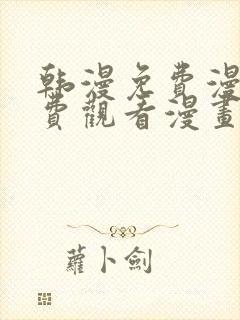 韩漫免費漫
費觀看漫畫
蘿卜劍